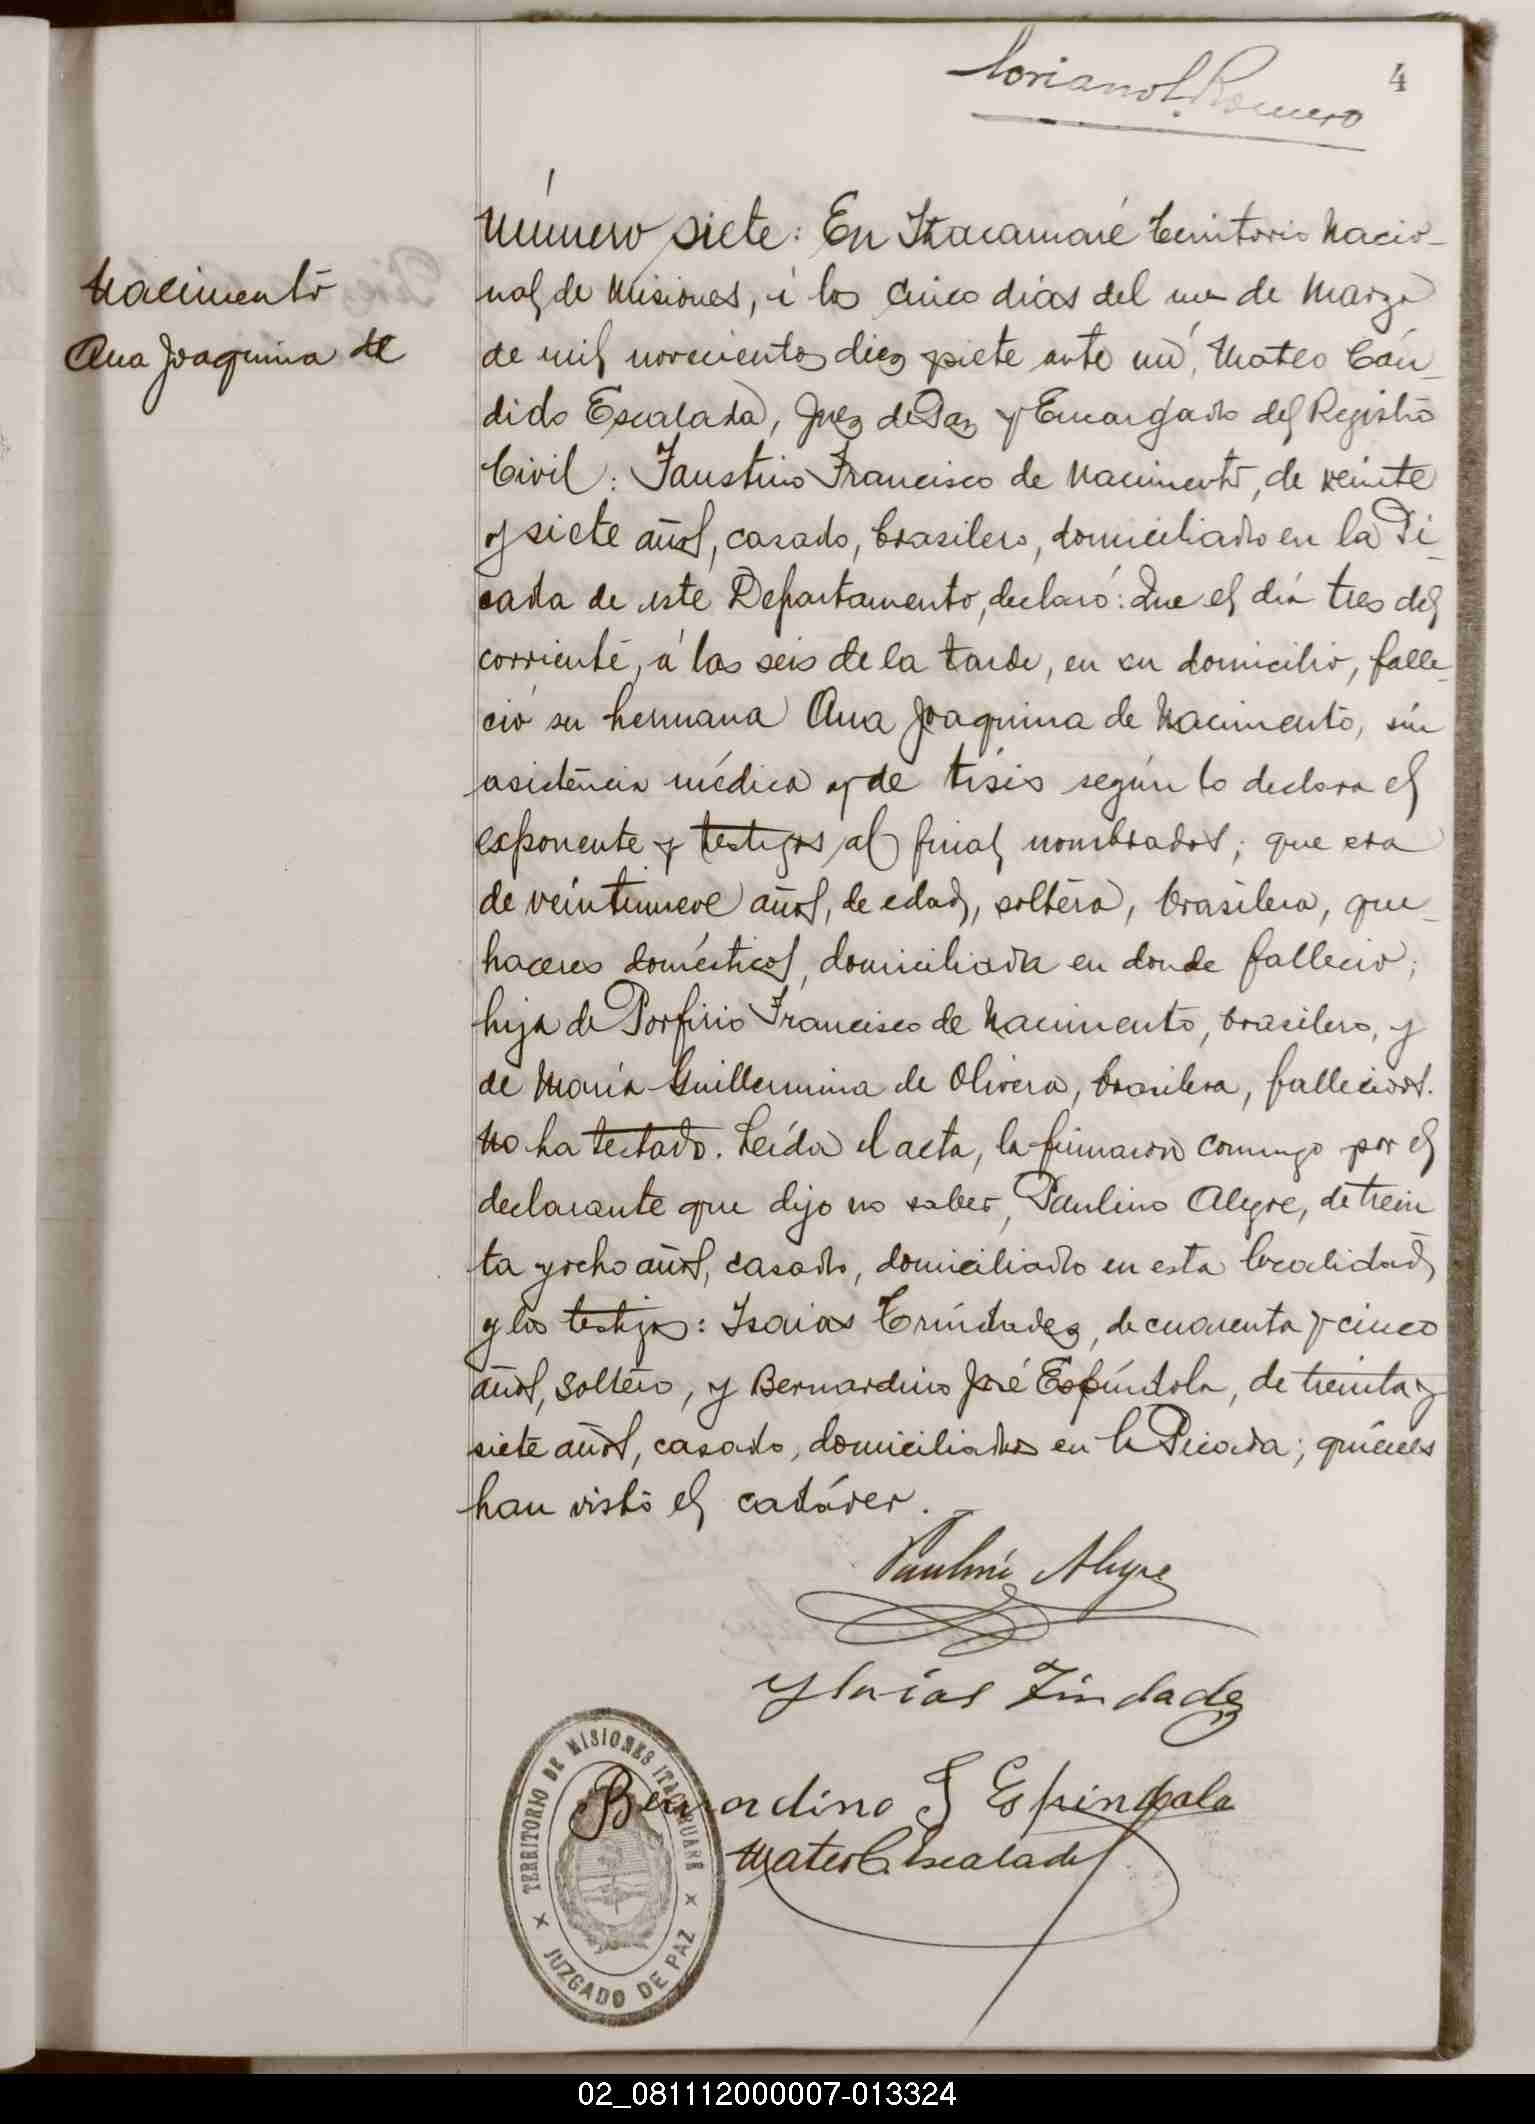 4
Romero
Número siete: En Itacaruaré Territorio Nacio-
nal de Misiones, á los cinco dias del mes de Marzo
de mil novecientos diez y siete ante mí, Mateo Cán-
dido Escalada, Juez de Paz y Encargado del Registro
Civil: Faustino Francisco de Nacimento, de veinte
y siete años, casado, brasilero, domiciliado en la Pi-
cada de este Departamento, declaró: Que el día tres del
corriente, á las seis de la tarde, en su domicilio, falle-
ció su hermana Ana Joaquina de Nacimento, sin
asistencia médica y de tisis según lo declara el
exponente y testigos al final nombrados; que era
de veintinueve años, de edad, soltera, brasilera, que-
haceres domésticos, domiciliada en donde falleció;
hija de Porfirio Francisco de Nacimento, brasilero, y
de María Guillermina de Olivera, brasilera, fallecidos.
No ha testado. Leída el acta, la firmaron conmigo por el
declarante que dijo no saber, Paulino Alegre, de trein
ta y ocho años, casado, domiciliado en esta localidad,
y los testigos: Isaias Trindadez, de cuarenta y cinco
años, soltero, y Bernardino José Espíndola, de treinta y
siete años, casado, domiciliados en la Picada; quienes
han visto el cadáver.
Nacimento
Ana Joaquina de
Paulino Alegre
Ysaías Tindadez
Bernardino J Espindola
Mateo C. Escalada
TERRITORIO DE MISIONES ITACARUARE
JUZGADO DE PAZ
02_081112000007-013324